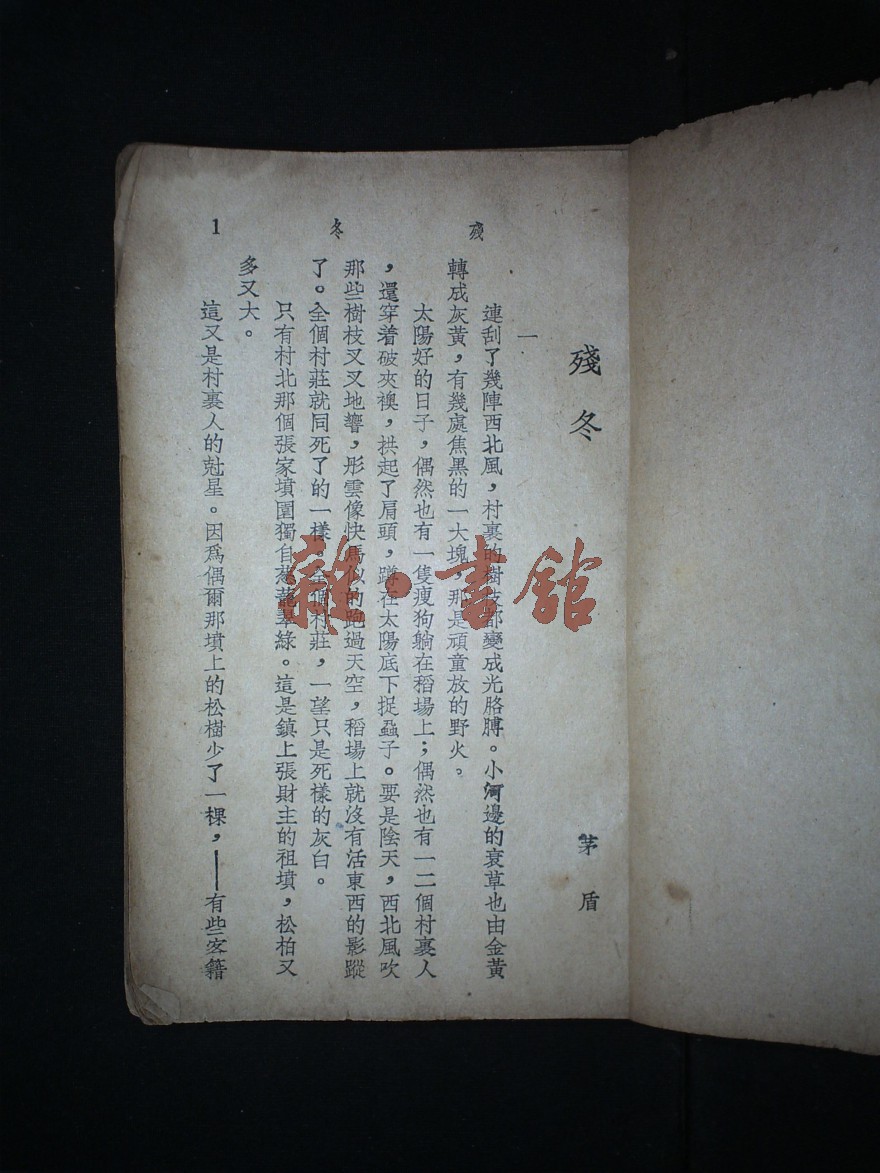 殘冬
1
殘冬
茅盾
一
連刮了幾陣西北風，村裏的樹枝都變成光胳膊。小河邊的衰草也由金黃
轉成灰黃，有幾處焦黑的一大塊，那是頑童放的野火。
太陽好的日子，偶然也有一隻瘦狗躺在稻場上；偶然也有一二個村裏人
，還穿着破夾襖，拱起了肩頭，蹲在太陽底下捉蝨子。要是陰天，西北風吹
那些樹枝叉叉地響，彤雲像快馬似的跑過天空，稻場上就沒有活東西的影蹤
了。全個村莊就同死了的一樣。全個村莊，一望只是死樣的灰白。
只有村北那個張家墳園獨自葱蘢翠綠。這是鎮上張財主的祖墳，松柏又
多又大。
這又是村裏人的尅星。因爲偶爾那墳上的松樹少了一棵，——有些客籍
雜·書館